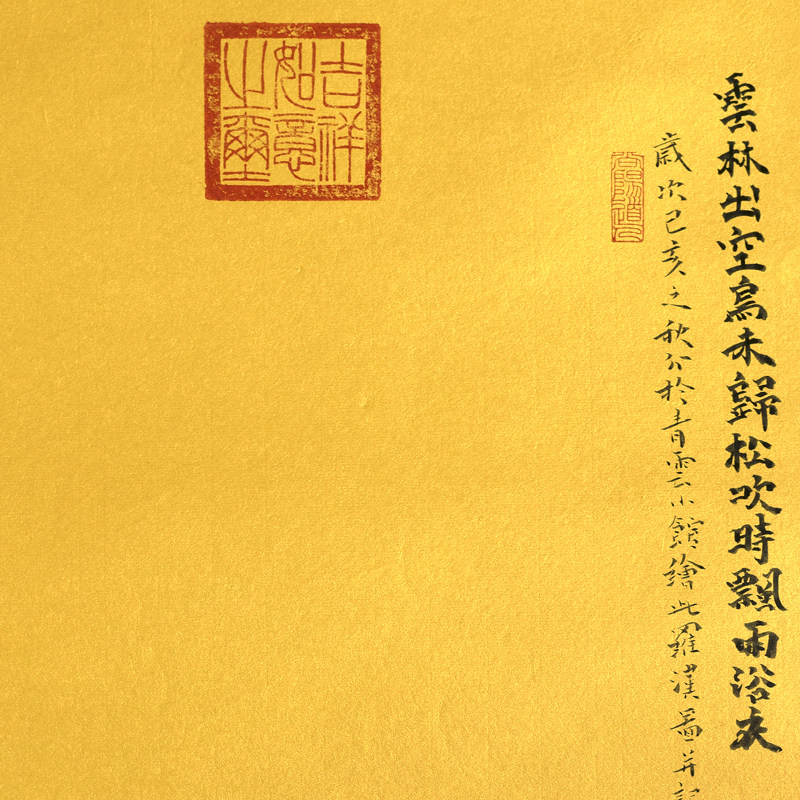 雲林出空鳥未歸松吹時飄雨浴衣
歲次己亥之秋分於青雲小館繪此羅漢圖并記
吉祥
如意
之璽